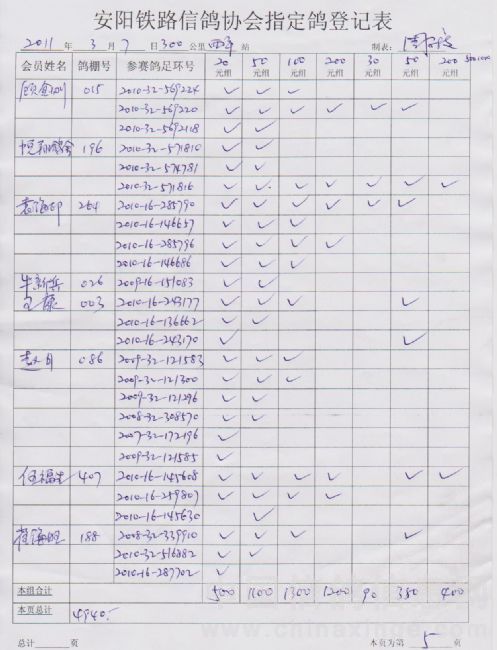 安阳铁路信鸽协会指定鸽登记表
2011 年 3 月 7 日 300 公里 站 制表:
会员姓名 鸽棚号 参赛鸽足环号 20元组 50元组 100元组 200元组 30元组 50元组 200元组
015 2010-32-569224 ✓ ✓ ✓
2010-32-569220 ✓ ✓ ✓ ✓ ✓ ✓
2010-32-5692118 ✓ ✓
196 2010-32-571810 ✓ ✓
2010-32-574781 ✓ ✓
2010-32-571816 ✓ ✓ ✓ ✓ ✓ ✓ ✓
264 2010-16-285790 ✓ ✓ ✓ ✓ ✓ ✓
2010-16-146657 ✓ ✓ ✓
2010-16-285796 ✓ ✓ ✓ ✓
2010-16-146686 ✓ ✓ ✓
牛新兵 026 2009-16-151083 ✓ ✓
003 2010-16-243177 ✓ ✓ ✓ ✓
2010-16-136662 ✓ ✓
2010-16-243170 ✓ ✓
086 2009-32-121583 ✓ ✓ ✓
2009-32-121300 ✓ ✓ ✓
2009-32-121296 ✓ ✓
2008-32-308570 ✓ ✓
2007-32-172196 ✓
2009-32-121585 ✓
任福生 407 2010-16-145608 ✓ ✓ ✓ ✓ ✓ ✓
2010-16-259807 ✓ ✓ ✓ ✓
2010-16-145630 ✓
188 2008-32-339910 ✓ ✓ ✓ ✓
2010-32-516882 ✓ ✓
2010-16-287702 ✓
本组合计 500 1100 1300 1200 90 350 400
本页总计 4940.-
总计 页 本页为第 5 页
www.chinaxinge.com